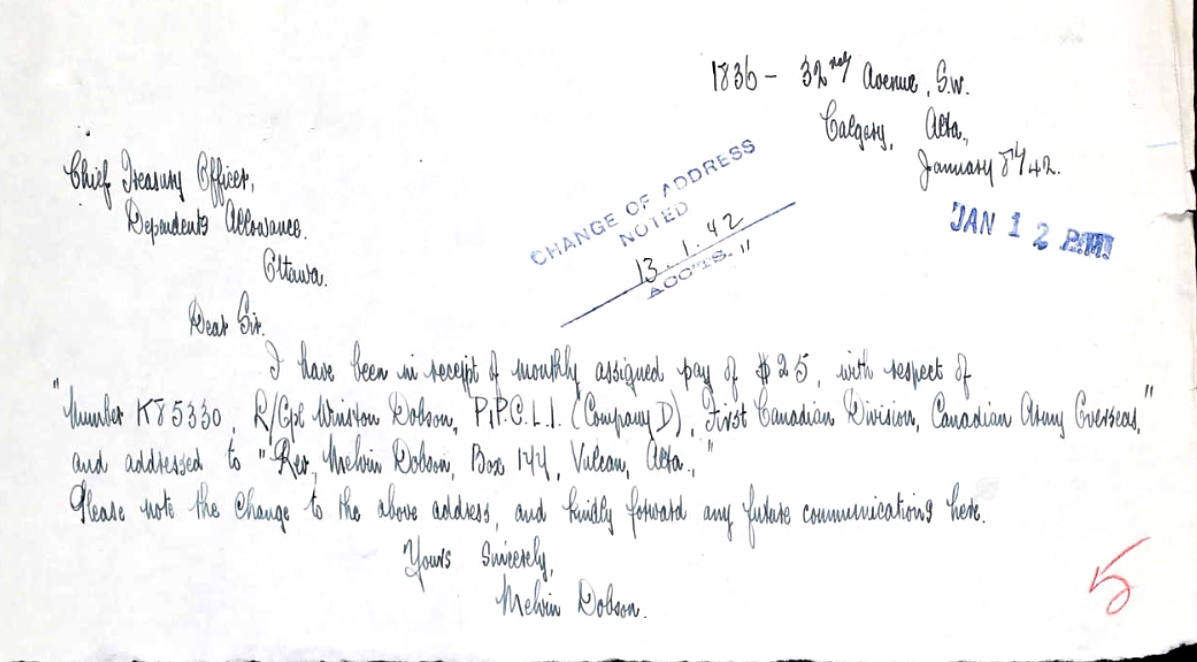 1836 - 32nd Avenue, S.W.
Calgary, Alta.,
January 8th/42.
Chief Treasury Officer,
Dependents Allowance.
Ottawa.
CHANGE OF ADDRESS
NOTED
13.1.42
ACCTS. "
JAN 12 P.M.
Dear Sir.
I have been in receipt of monthly assigned pay of $25, with respect of
"Number K85330, R/Cpl Winston Dobson, P.P.C.L.I. (Company D), First Canadian Division, Canadian Army Overseas,"
and addressed to "Rev. Melvin Dobson, Box 144, Vulcan, Alta.,"
Please note the change to the above address, and kindly forward any future communications here.
Yours Sincerely,
Melvin Dobson.
5